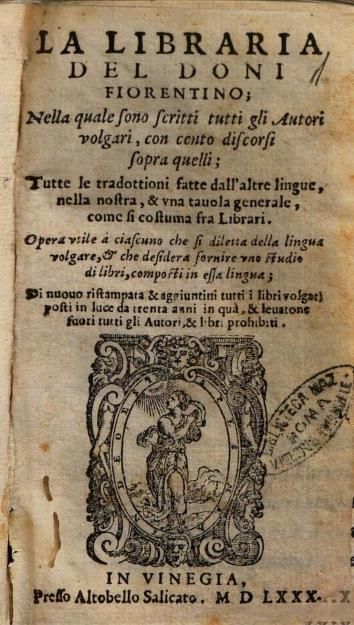 LA LIBRARIA
DEL DONI
FIORENTINO;
Nella quale sono scritti tutti gli Autori
volgari, con cento discorsi
sopra quelli;
Tutte le tradottioni fatte dall'altre lingue,
nella nostra, & vna tauola generale,
come si costuma fra Librari.
Opera vtile à ciascuno che si diletta della lingua
volgare, & che desidera fornire vno studio
di libri, composti in essa lingua;
Di nuouo ristampata, & aggiuntini tutti i libri volgari
posti in luce da trenta anni in quà, & leuatone
fuori tutti gli Autori, & libri prohibiti.
BIBLIOTECA NAZ.
ROMA
IN VINEGIA,
Presso Altobello Salicato. M D LXXX.